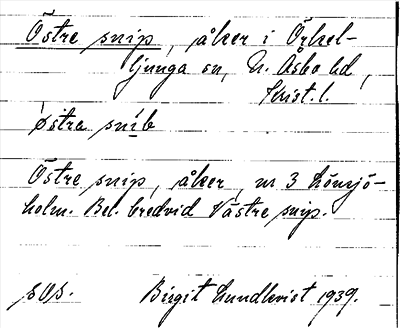 Östre snip, åker i Örkel-
ljunga sn, N. Åsbo hd,
Krist. l.
östra sníb
Östre snip, åker, nr 3 Hönsjö-
holm. Bel. bredvid Västre snip.
sOs. Birgit Lundkvist 1939.